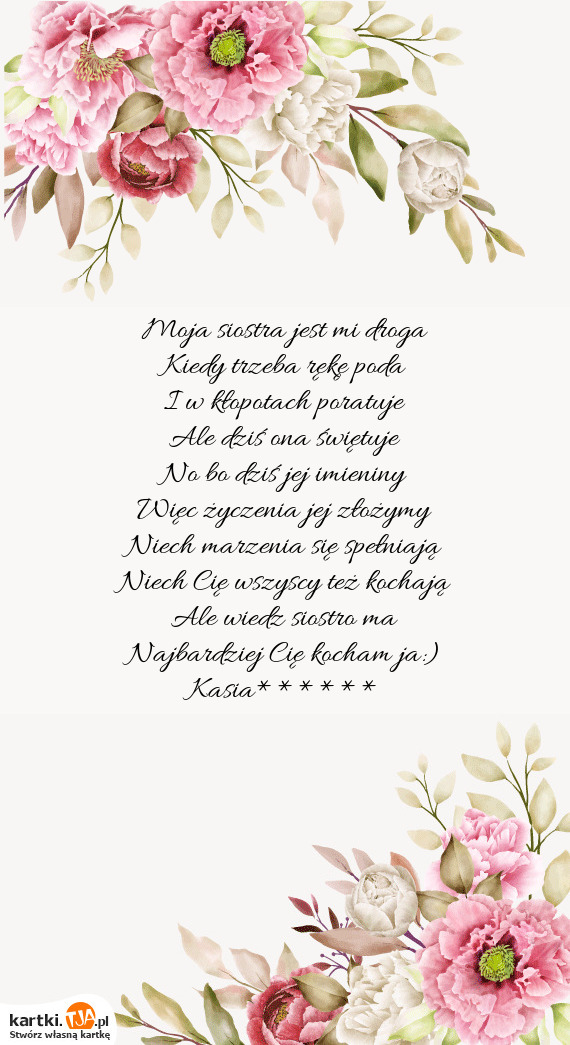 Moja siostra jest mi droga
Kiedy trzeba rękę poda
I w kłopotach poratuje
Ale dziś ona świętuje
No bo dziś jej imieniny
Więc życzenia jej złożymy
Niech marzenia się spełniają
Niech Cię wszyscy też kochają
Ale wiedz siostro ma
Najbardziej Cię kocham ja:)
Kasia* * * * * *
kartki.TJA.pl
Stwórz własną kartkę